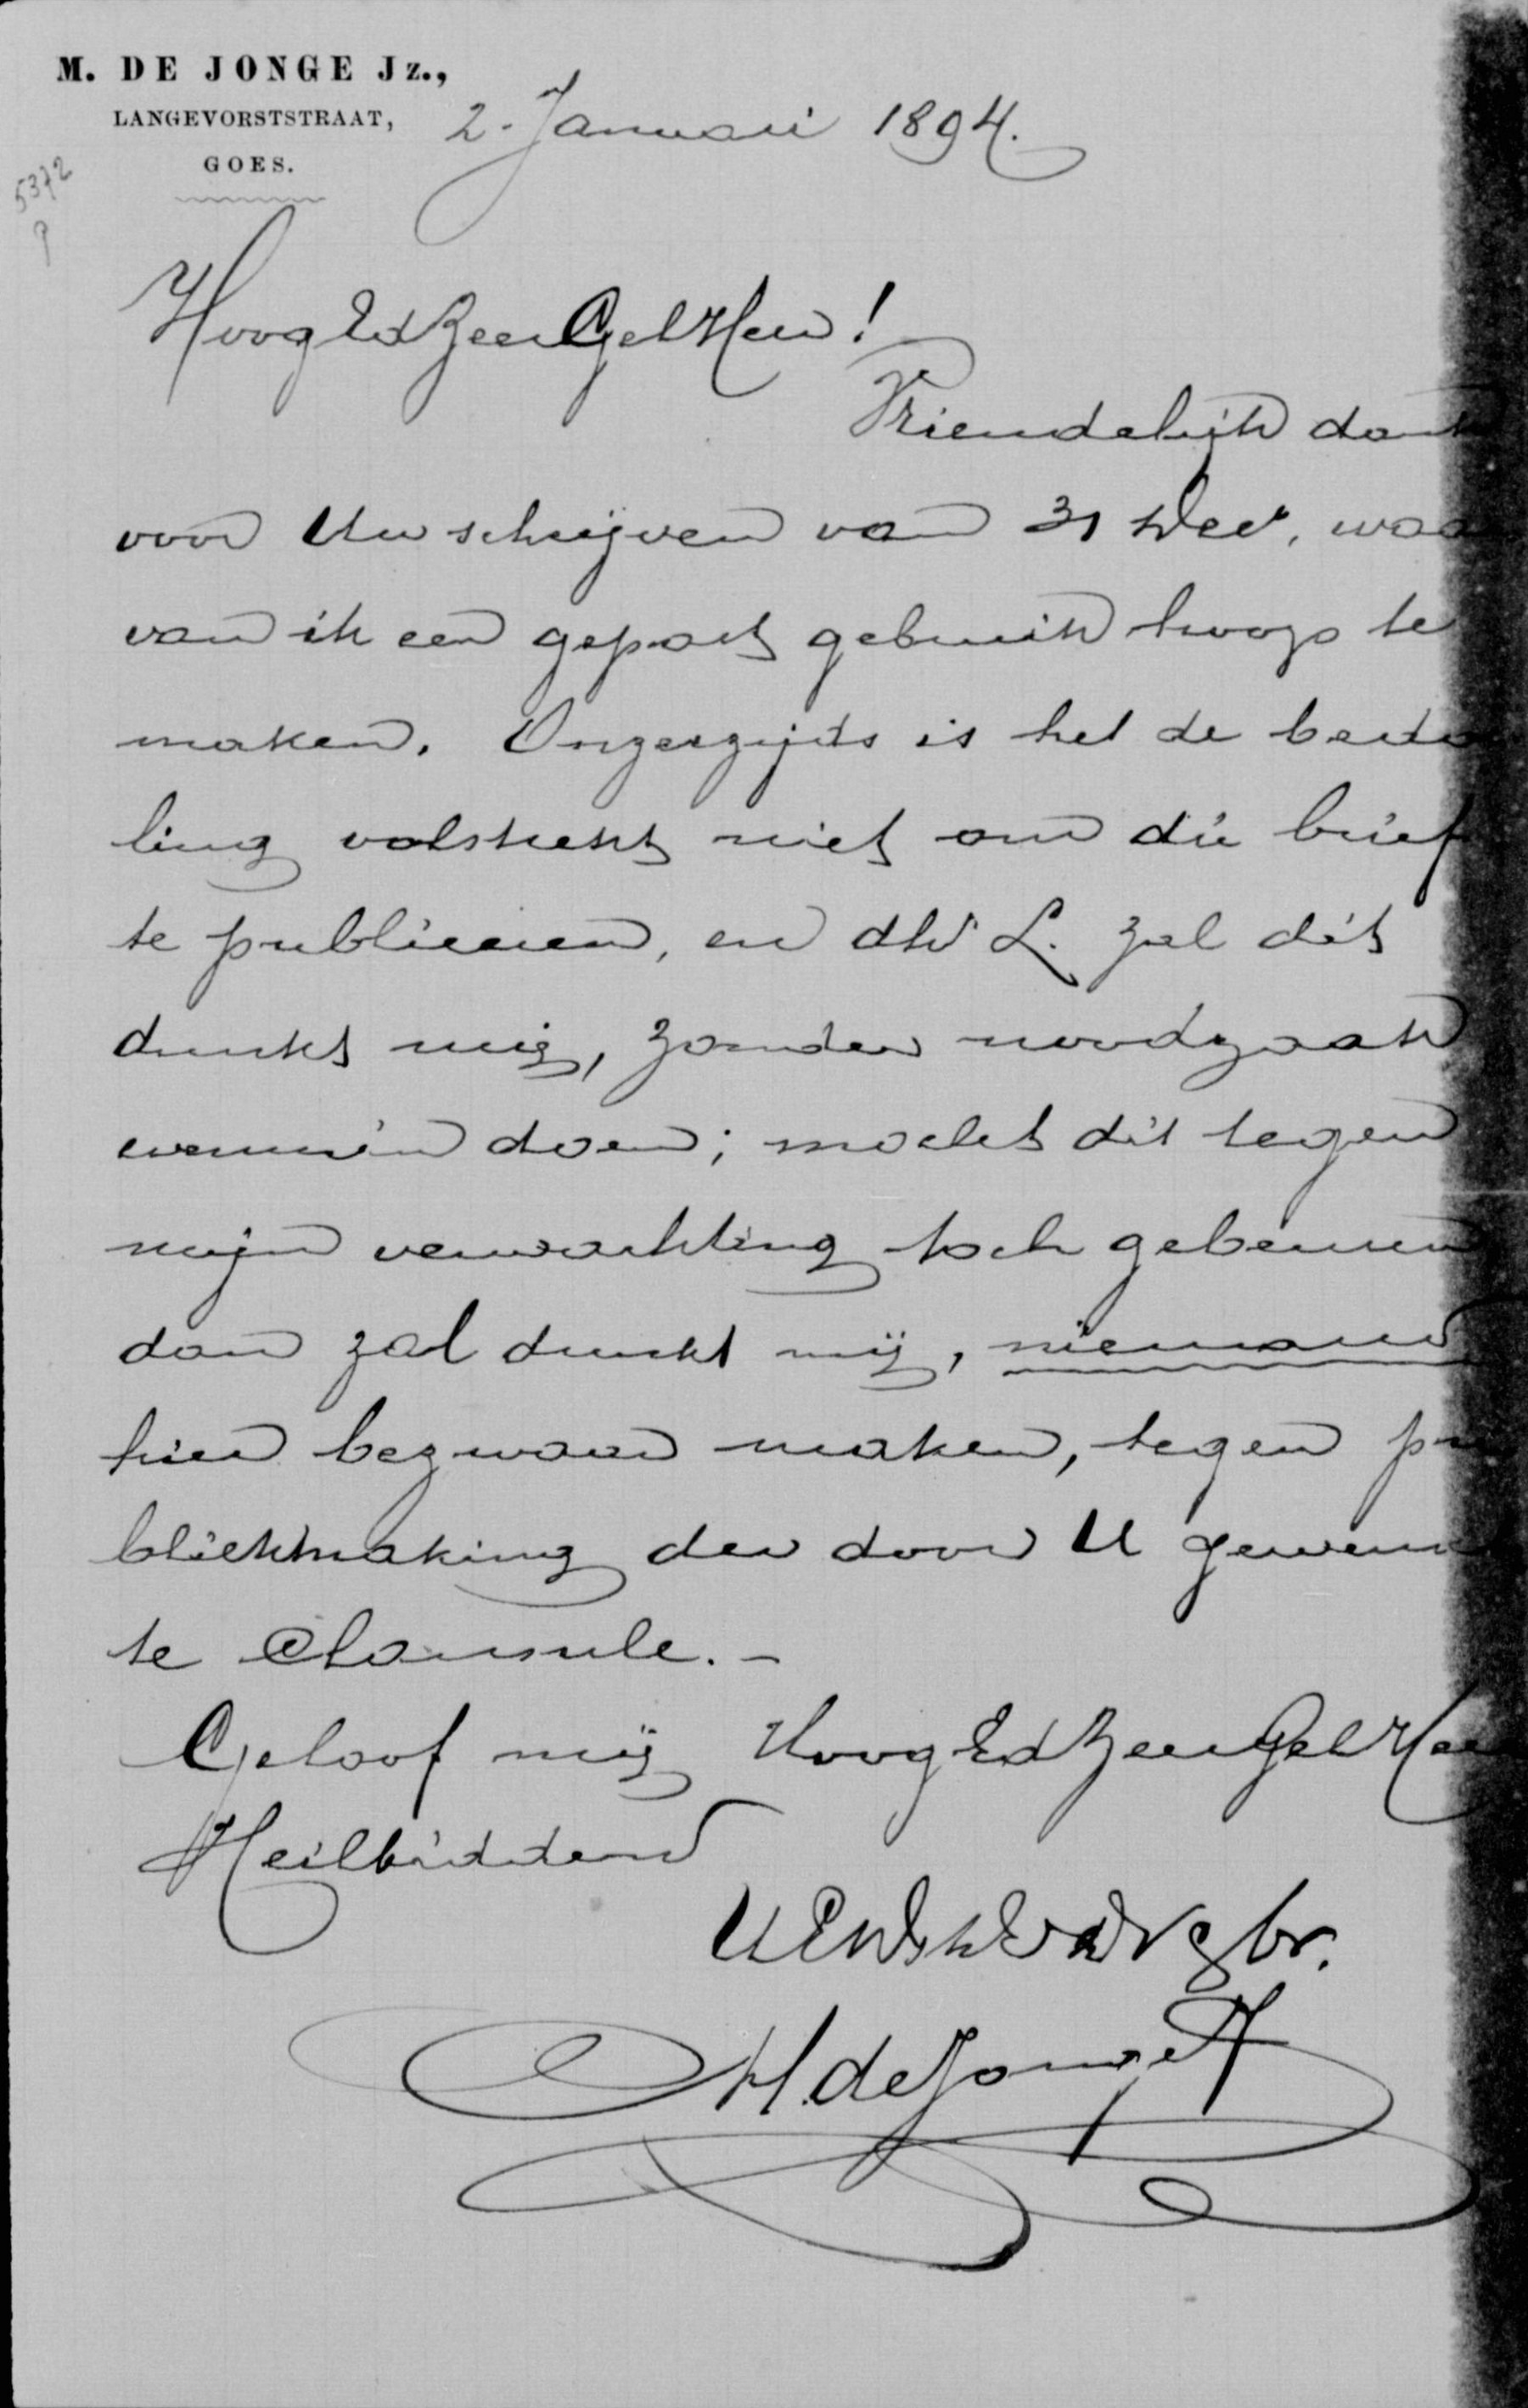 M. DE JONGE Jz.,
LANGEVORSTSTRAAT,
GOES.
2. Januari 1894.
5372
HoogEdZeerGelHeer!
Vriendelijk dank
voor Uw schrijven van 31 Dec., waar
van ik een gepast gebruik hoop te
maken. Onzerzijds is het de bedoe
ling volstrekt niet om die brief
te publiceeren, en dhr L. zal dit
dunkt mij, zonder noodzaak
evenmin doen; mocht dit tegen
mijn verwachting toch gebeuren
dan zal dunkt mij, niemand
hier bezwaar maken, tegen pu
bliekmaking der door U gewensch
te Clausule. -
Geloof mij HoogEdZeerGelHeer
Heilbiddend
M. de Jonge Jz